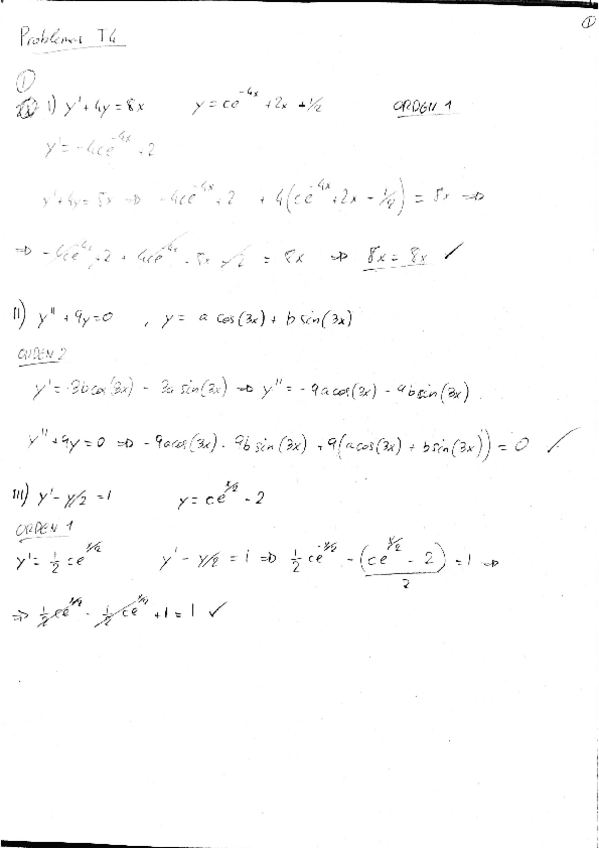 ①
Problemas T4
①
I) y' + 4y = 8x y = ce^{-4x} + 2x + 1/2 ORDEN 1
y' = -4ce^{-4x} + 2
y' + 4y = 8x ⇒ -4ce^{-4x} + 2 + 4(ce^{-4x} + 2x - ) = 8x ⇒
⇒ -4ce^{-4x} + 2 + 4ce^{-4x} + 8x - 2 = 8x ⇒ 8x = 8x ✓
II) y'' + 9y = 0 , y = a cos(3x) + b sin(3x)
ORDEN 2
y' = 3b cos(3x) - 3a sin(3x) ⇒ y'' = -9a cos(3x) - 9b sin(3x)
y'' + 9y = 0 ⇒ -9a cos(3x) - 9b sin(3x) + 9(a cos(3x) + b sin(3x)) = 0 ✓
III) y' - y/2 = 1 y = ce^{x/2} - 2
ORDEN 1
y' = 1/2 ce^{x/2} y' - y/2 = 1 ⇒ 1/2 ce^{x/2} - (ce^{x/2} - 2)/2 = 1 ⇒
⇒ 1/2 ce^{x/2} - 1/2 ce^{x/2} + 1 = 1 ✓